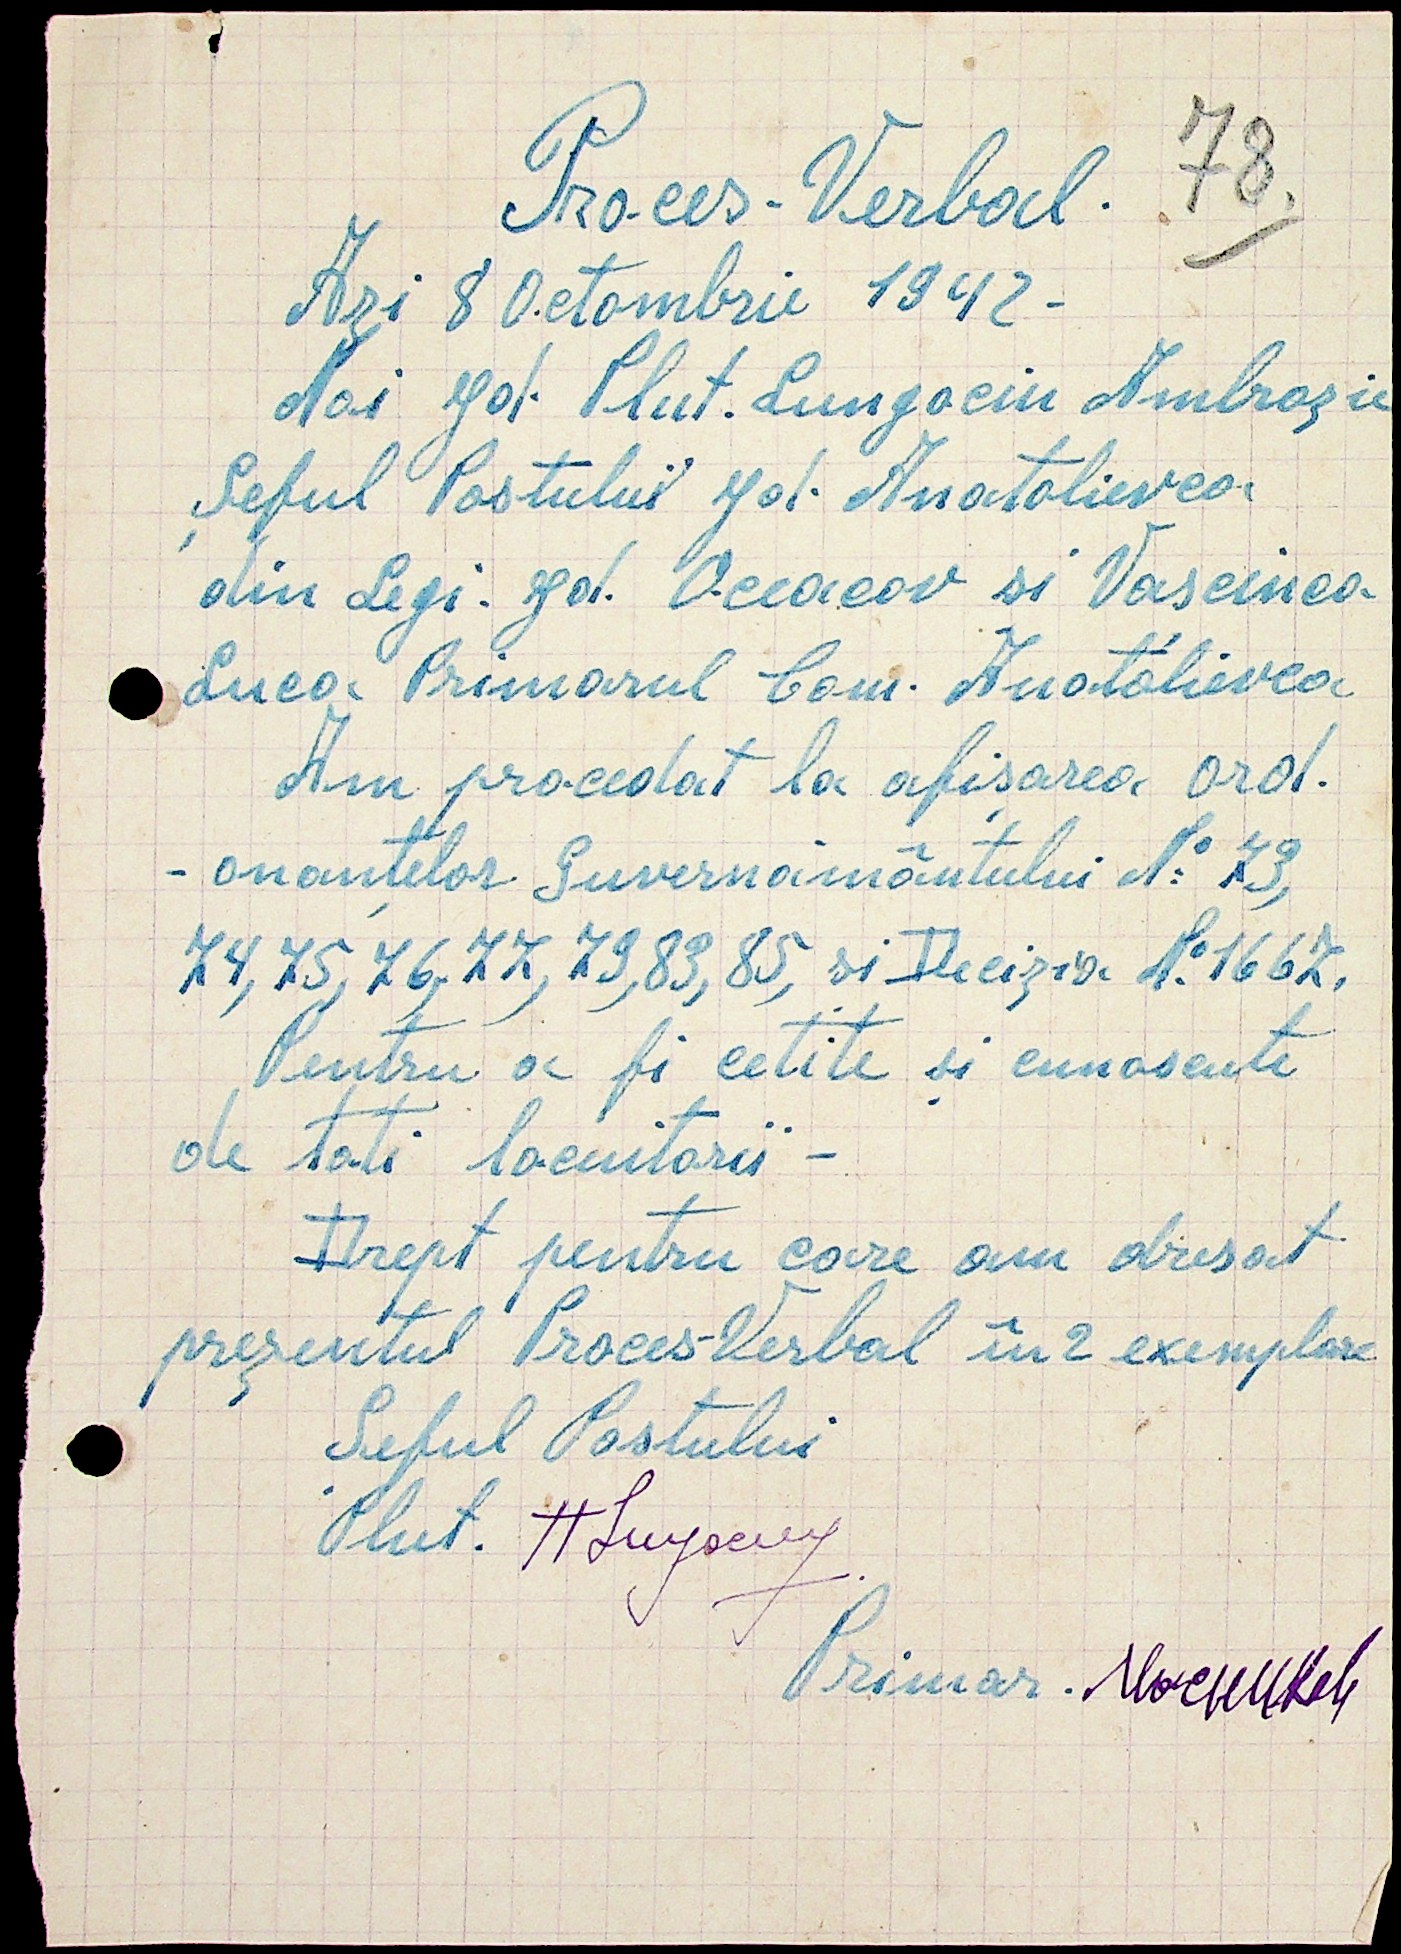 78.
Proces-Verbal.
Azi 8 Octombrie 1942-
Noi Jd. Plut. Lungociu Ambrozie
Șeful Postului Jd. Anatolievca
din Legi. Jd. Oceacov si Vascinca
Luca Primarul Com. Anatolievca
Am procedat la afișarea ord.
- onanțelor Guvernământului No: 73,
74, 75, 76, 77, 79, 83, 85, si Decizia No. 1667.
Pentru a fi cetite și cunoscute
de toti locuitorii -
Drept pentru care am dresat
prezentul Proces-Verbal în 2 exemplare
Șeful Postului
Plut.
Primar.